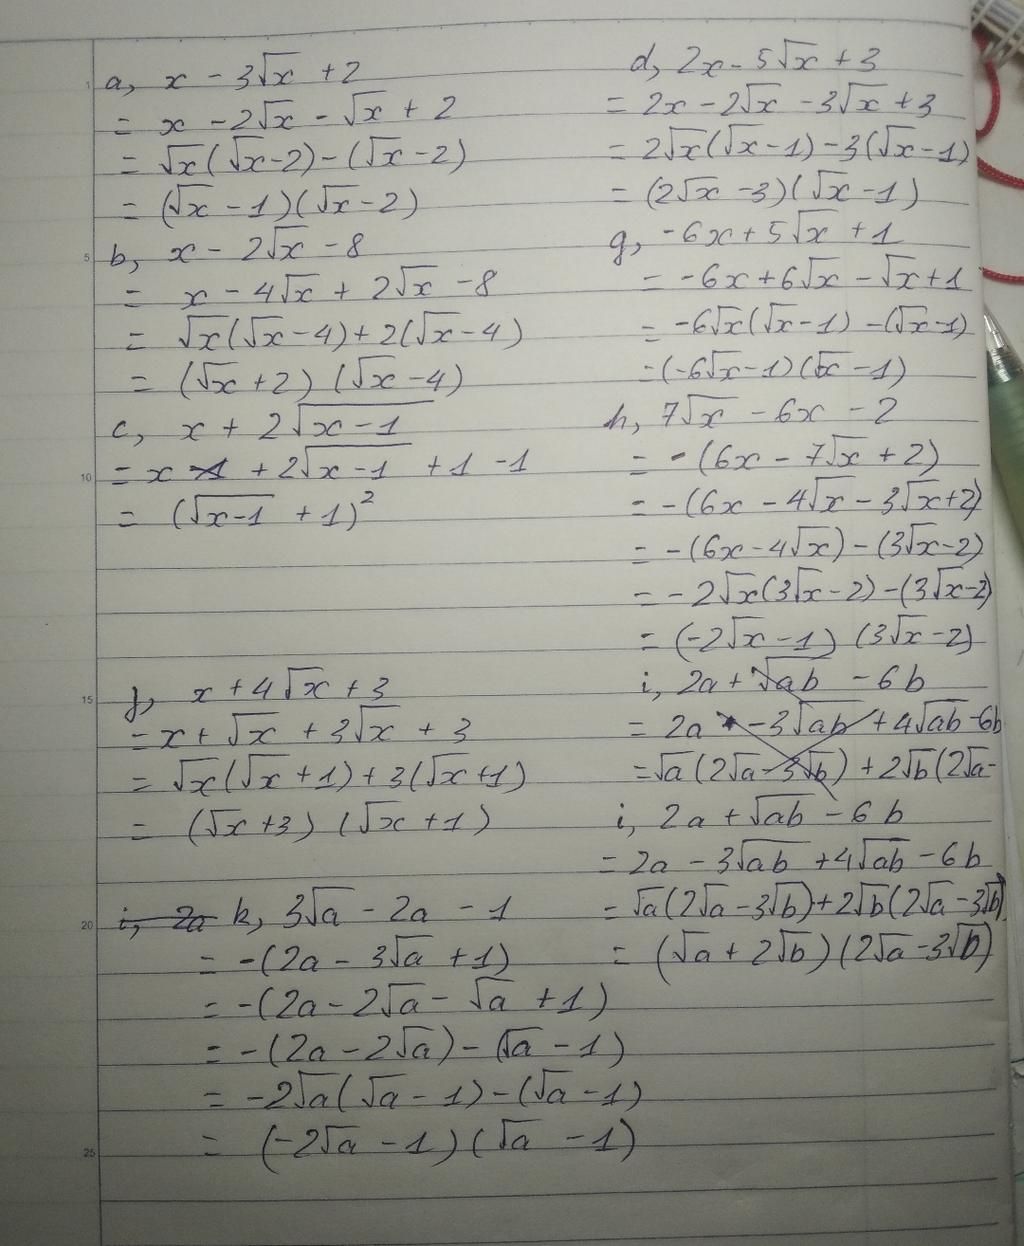 a, x - 3√x + 2
= x - 2√x - √x + 2
= √x(√x-2) - (√x-2)
= (√x - 1)(√x-2)
b, x - 2√x - 8
= x - 4√x + 2√x - 8
= √x(√x-4)+2(√x-4)
= (√x+2) (√x-4)
c, x + 2√(x-1)
= x -1 + 2√(x-1) + 1 -1
= (√(x-1) + 1)²
f, x + 4√x + 3
= x + √x + 3√x + 3
= √x(√x+1)+3(√x+1)
= (√x+3) (√x+1)
i, 2a k, 3√a - 2a - 1
= -(2a - 3√a + 1)
= -(2a - 2√a - √a + 1)
= -(2a - 2√a) - (√a - 1)
= -2√a(√a - 1) - (√a - 1)
= (-2√a - 1)(√a - 1)
d, 2x - 5√x + 3
= 2x - 2√x - 3√x + 3
= 2√x(√x-1) - 3(√x-1)
= (2√x - 3)(√x - 1)
g, -6x + 5√x + 1
= -6x + 6√x - √x + 1
= -6√x(√x-1) - (√x-1)
= (-6√x-1)(√x-1)
h, 7√x - 6x - 2
= -(6x - 7√x + 2)
= -(6x - 4√x - 3√x+2)
= -(6x-4√x) - (3√x-2)
= -2√x(3√x-2) - (3√x-2)
= (-2√x-1) (3√x-2)
i, 2a + √ab - 6b
= 2a - 3√ab + 4√ab - 6b
= √a(2√a-3√b) + 2√b(2√a-
i, 2a + √ab - 6b
= 2a - 3√ab + 4√ab - 6b
= √a(2√a-3√b)+2√b(2√a-3√b)
= (√a + 2√b)(2√a-3√b)